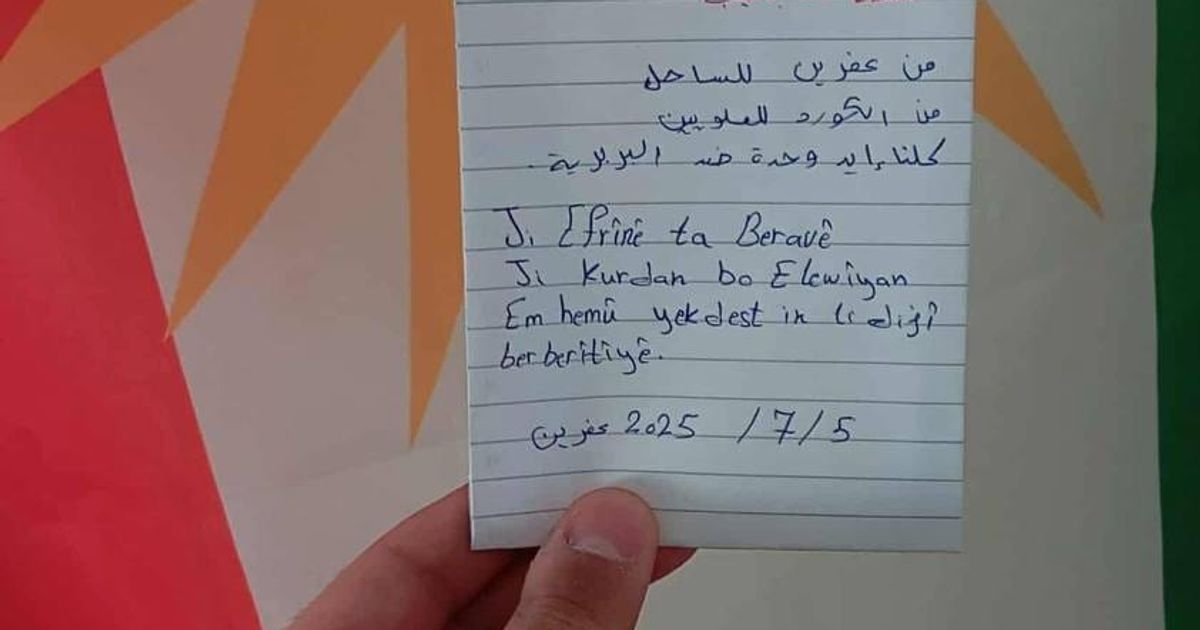 من عفرين للساحل
من الكورد للعلويين
كلنا إيد وحدة ضد البربرية.
Ji Efrînê ta Beravê
Ji Kurdan bo Elewiyan
Em hemû yekdest in li dijî
berberîtiyê.
5/7/ 2025 عفرين